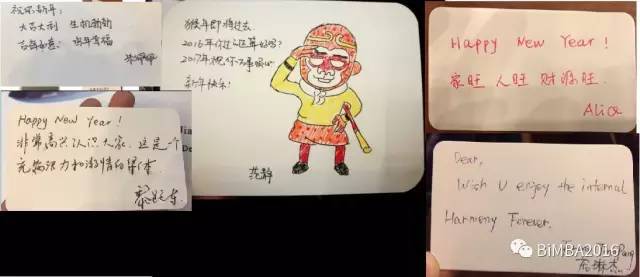 祝您新年：
大吉大利 生机勃勃
吉祥如意 鸡年幸福
Happy New Year!
非常高兴认识大家，这是一个
充满活力和激情的集体。
猴年即将过去
2016年你过
2017年祝你万事顺心
新年快乐！
范静
Happy New Year!
家旺 人旺 财源旺
Alice
Dear,
Wish U enjoy the internal
Harmony Forever.
Pang
BiMBA2016